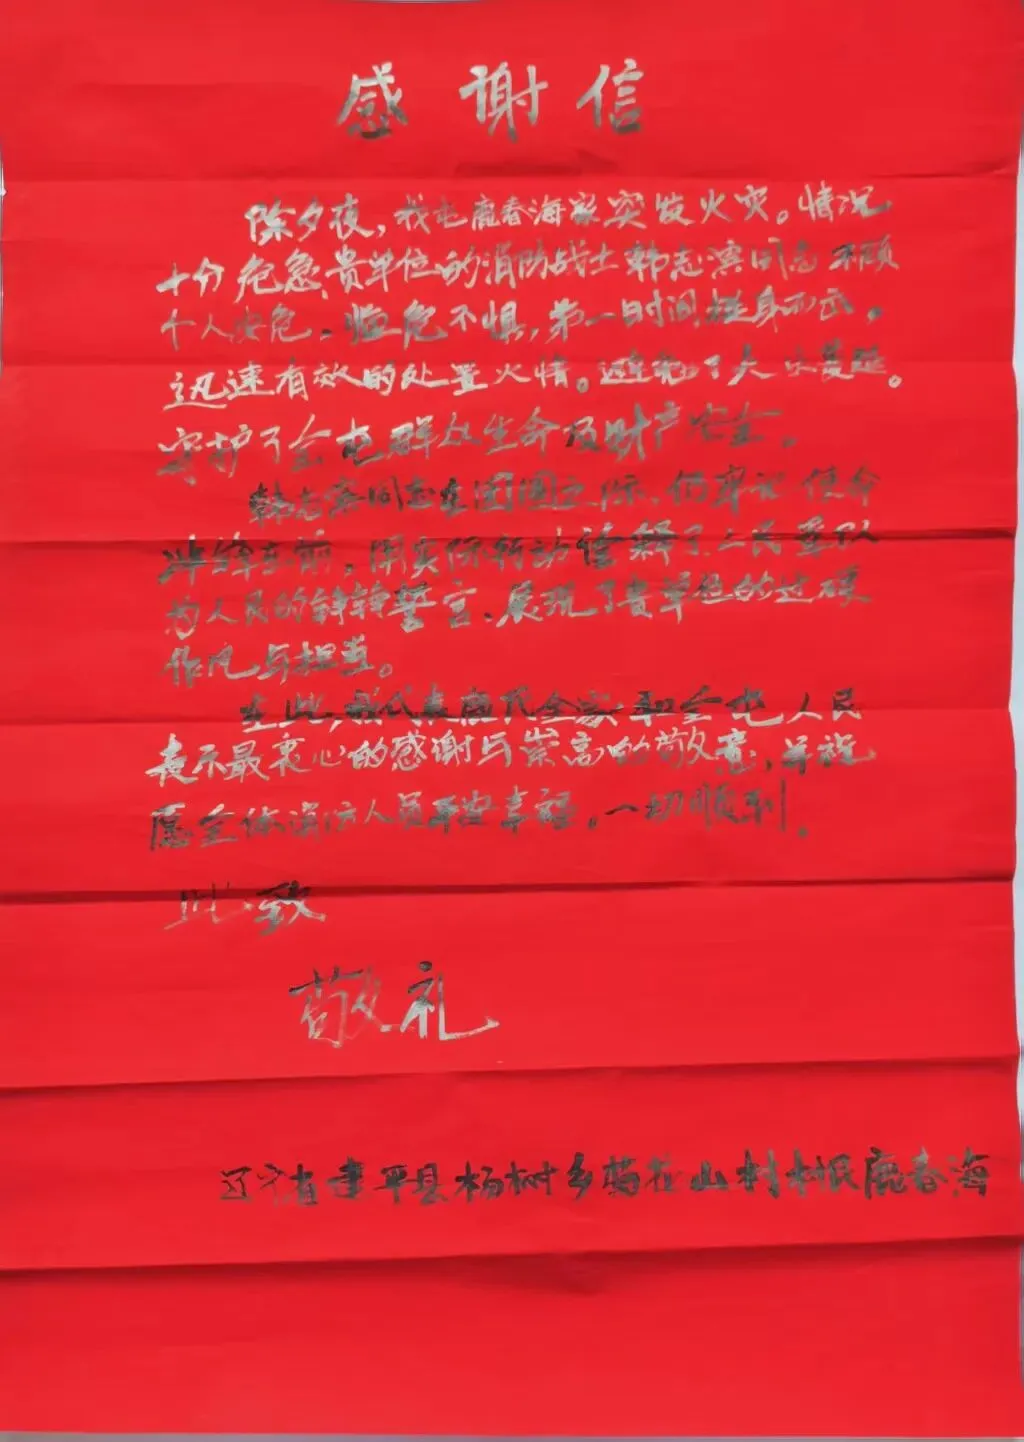 感谢信
除夕夜，我屯鹿春海家突发火灾。情况
十分危急、贵单位的消防战士韩志滨同志不顾
个人安危。临危不惧，第一时间挺身而出。
迅速有效的处置火情。避免了大火蔓延。
守护了全屯群众生命及财产安全。
韩志滨同志在团圆之际、仍牢记使命
冲锋在前，用实际行动诠释了人民至队
为人民的铮铮誓言、展现了贵单位的过硬
作风与担当。
在此，我代表鹿氏全家和全屯人民
表示最衷心的感谢与崇高的敬意，并祝
愿全体消防人员平安幸福。一切顺利。
此致
敬礼
辽宁省建平县杨树乡菊花山村村民鹿春海